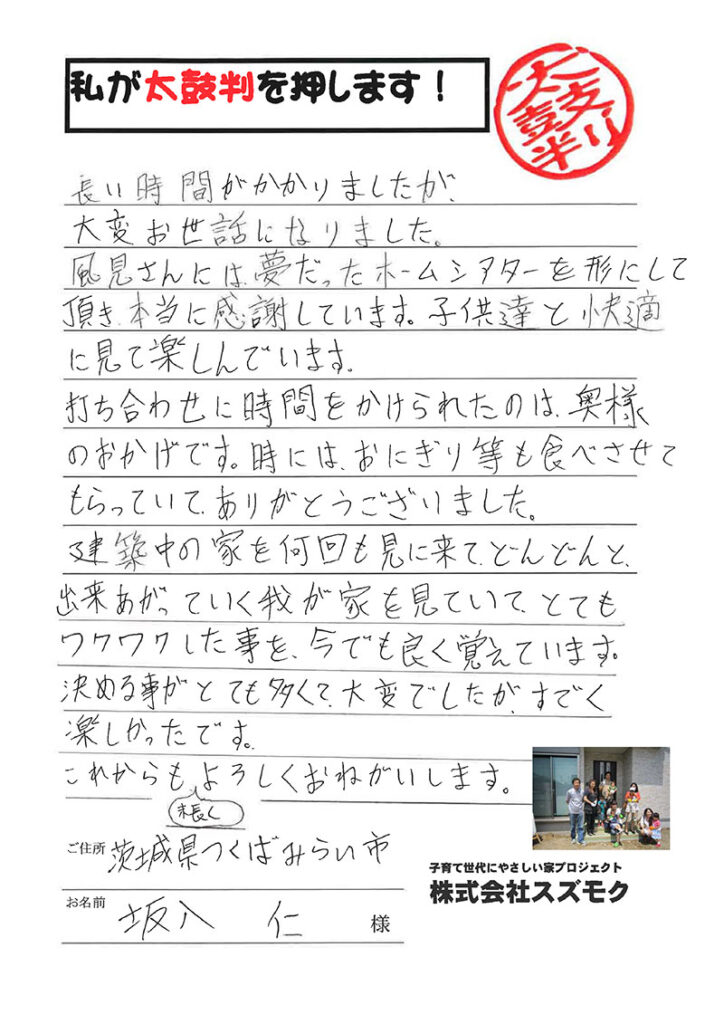 私が太鼓判を押します！
太鼓判
長い時間がかかりましたが、
大変お世話になりました。
風見さんには、夢だったホームシアターを形にして
頂き、本当に感謝しています。子供達と快適
に見て楽しんでいます。
打ち合わせに時間をかけられたのは、奥様
のおかげです。時には、おにぎり等も食べさせて
もらっていて、ありがとうございました。
建築中の家を何回も見に来て、どんどんと、
出来あがっていく我が家を見ていて、とても
ワクワクした事を、今でも良く覚えています。
決める事がとても多くて、大変でしたが、すごく
楽しかったです。
これからもよろしくおねがいします。
末長く
ご住所 茨城県つくばみらい市
お名前 坂入 仁 様
子育て世代にやさしい家プロジェクト
株式会社スズモク